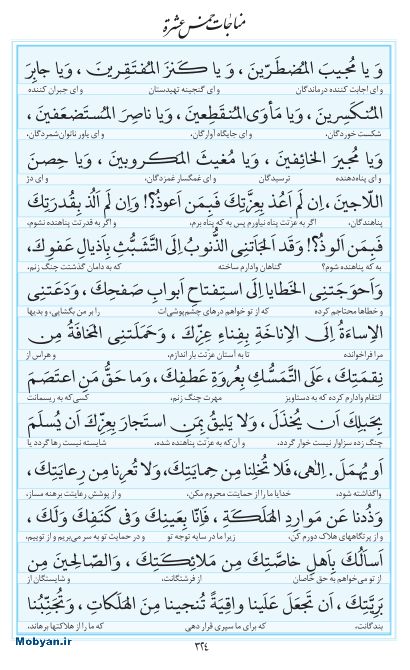 مناجات خمس عشرة
وَ یا مُجیبَ المُضطَرّینَ ، وَ یا کَنزَ المُفتَقِرینَ ، وَیا جابِرَ
و ای اجابت کننده درماندگان و ای گنجینه تهیدستان و ای جبران کننده
المُنکَسِرینَ ، وَیا مَأوَی المُنقَطِعینَ ، وَیا ناصِرَ المُستَضعَفینَ ،
شکست خوردگان، و ای جایگاه آوارگان، و ای یاور ناتوان‌شمردگان،
وَیا مُجیرَ الخائِفینَ ، وَیا مُغیثَ المَکروبینَ ، وَیا حِصنَ
و ای پناه‌دهنده ترسیدگان و ای غمگسار غمزدگان، و ای دژ
اللّاجینَ ، اِن لَم اَعُذ بِعِزَّتِکَ فَبِمَن اَعوذُ؟! وَاِن لَم اَلُذ بِقُدرَتِکَ
پناهندگان، اگر به عزتت پناه نیاورم پس به که پناه برم، و اگر به قدرتت پناهنده نشوم،
فَبِمَن اَلوذُ؟! وَقَد اَلجَاَتنِی الذُّنوبُ اِلَی التَّشَبُّثِ بِاَذیالِ عَفوِکَ،
به که پناهنده شوم؟ گناهان وادارم ساخته که به دامان گذشتت چنگ زنم،
وَاَحوَجَتنِی الخَطایا اِلَی استِفتاحِ اَبوابِ صَفحِکَ ، وَدَعَتنِی
و خطاها محتاجم کرده که از تو خواهم درهای چشم‌پوشی‌ات را بر من بگشایی، و بدیها
الاِساءَةُ اِلَی الاِناخَةِ بِفِناءِ عِزِّکَ ، وَحَمَلَتنِی المَخافَةُ مِن
مرا فراخوانده تا به آستان عزتت بار اندازم، و هراس از
نِقمَتِکَ ، عَلَی التَّمَسُّکِ بِعُروَةِ عَطفِکَ ، وَما حَقُّ مَنِ اعتَصَمَ
انتقام وادارم کرده که به دستاویز مهرت چنگ زنم، کسی‌که به ریسمانت
بِحَبلِکَ اَن یُخذَلَ ، وَلا یَلیقُ بِمَنِ استَجارَ بِعِزِّکَ اَن یُسلَمَ
چنگ زده سزاوار نیست خوار گردد، و آن‌که به عزتت پناهنده شده، شایسته نیست رها گردد یا
اَو یُهمَلَ . اِلٰهی، فَلا تُخلِنا مِن حِمایَتِکَ، وَلا تُعرِنا مِن رِعایَتِکَ ،
واگذاشته شود، خدایا ما را از حمایتت محروم مکن، و از پوشش رعایتت برهنه مساز،
وَذُدنا عَن مَوارِدِ الهَلَکَةِ ، فَاِنّا بِعَینِکَ وَفی کَنَفِکَ وَلَکَ ،
و از پرتگاههای هلاک دورم کن، زیرا ما در سایه توجه تو و در حمایت تو به سر می‌بریم و از توییم،
اَساَلُکَ بِاَهلِ خاصَّتِکَ مِن مَلائِکَتِکَ ، وَالصّالِحینَ مِن
از تو می‌خواهم به حق خاصان از فرشتگانت، و شایستگان از
بَرِیَّتِکَ ، اَن تَجعَلَ عَلَینا واقِیَةً تُنجینا مِنَ الهَلَکاتِ ، وَتُجَنِّبُنا
بندگانت، که برای ما سپری قرار دهی که ما را از هلاکتها برهاند،
Mobyan.ir
۳۲۴